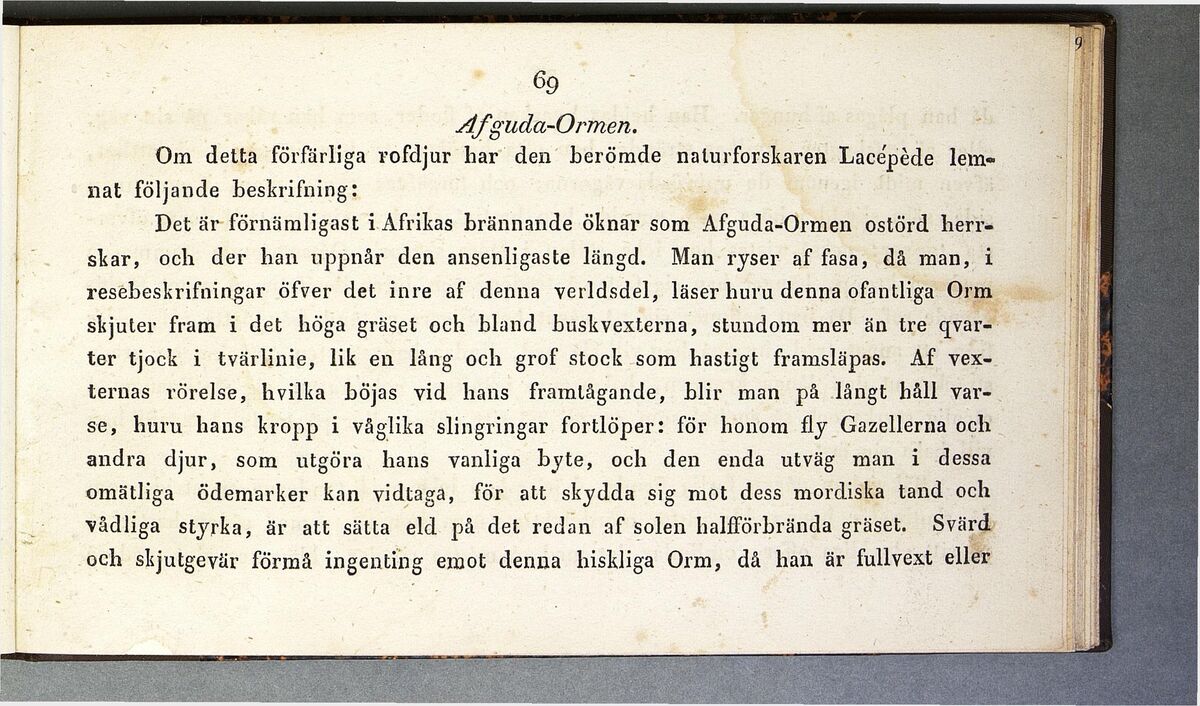 69
Afguda-Ormen.
Om detta förfärliga rofdjur har den berömde naturforskaren Lacépède lem-
nat följande beskrifning:
Det är förnämligast i Afrikas brännande öknar som Afguda-Ormen ostörd herr-
skar, och der han uppnår den ansenligaste längd. Man ryser af fasa, då man, i
resebeskrifningar öfver det inre af denna verldsdel, läser huru denna ofantliga Orm
skjuter fram i det höga gräset och bland buskvexterna, stundom mer än tre qvar-
ter tjock i tvärlinie, lik en lång och grof stock som hastigt framsläpas. Af vex-
ternas rörelse, hvilka böjas vid hans framtågande, blir man på långt håll var-
se, huru hans kropp i våglika slingringar fortlöper: för honom fly Gazellerna och
andra djur, som utgöra hans vanliga byte, och den enda utväg man i dessa
omätliga ödemarker kan vidtaga, för att skydda sig mot dess mordiska tand och
vådliga styrka, är att sätta eld på det redan af solen halfförbrända gräset. Svärd
och skjutgevär förmå ingenting emot denna hiskliga Orm, då han är fullvext eller
9